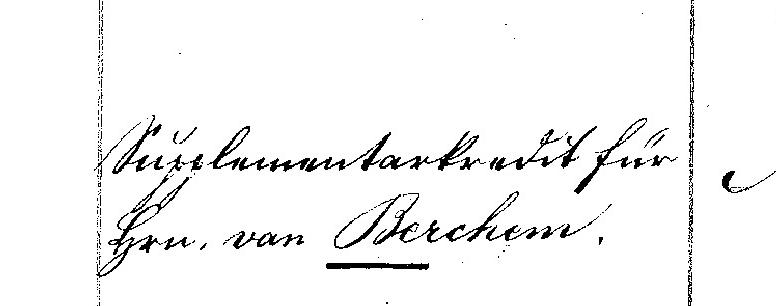 Supplementarkredit für
Hrn. van Berchem.